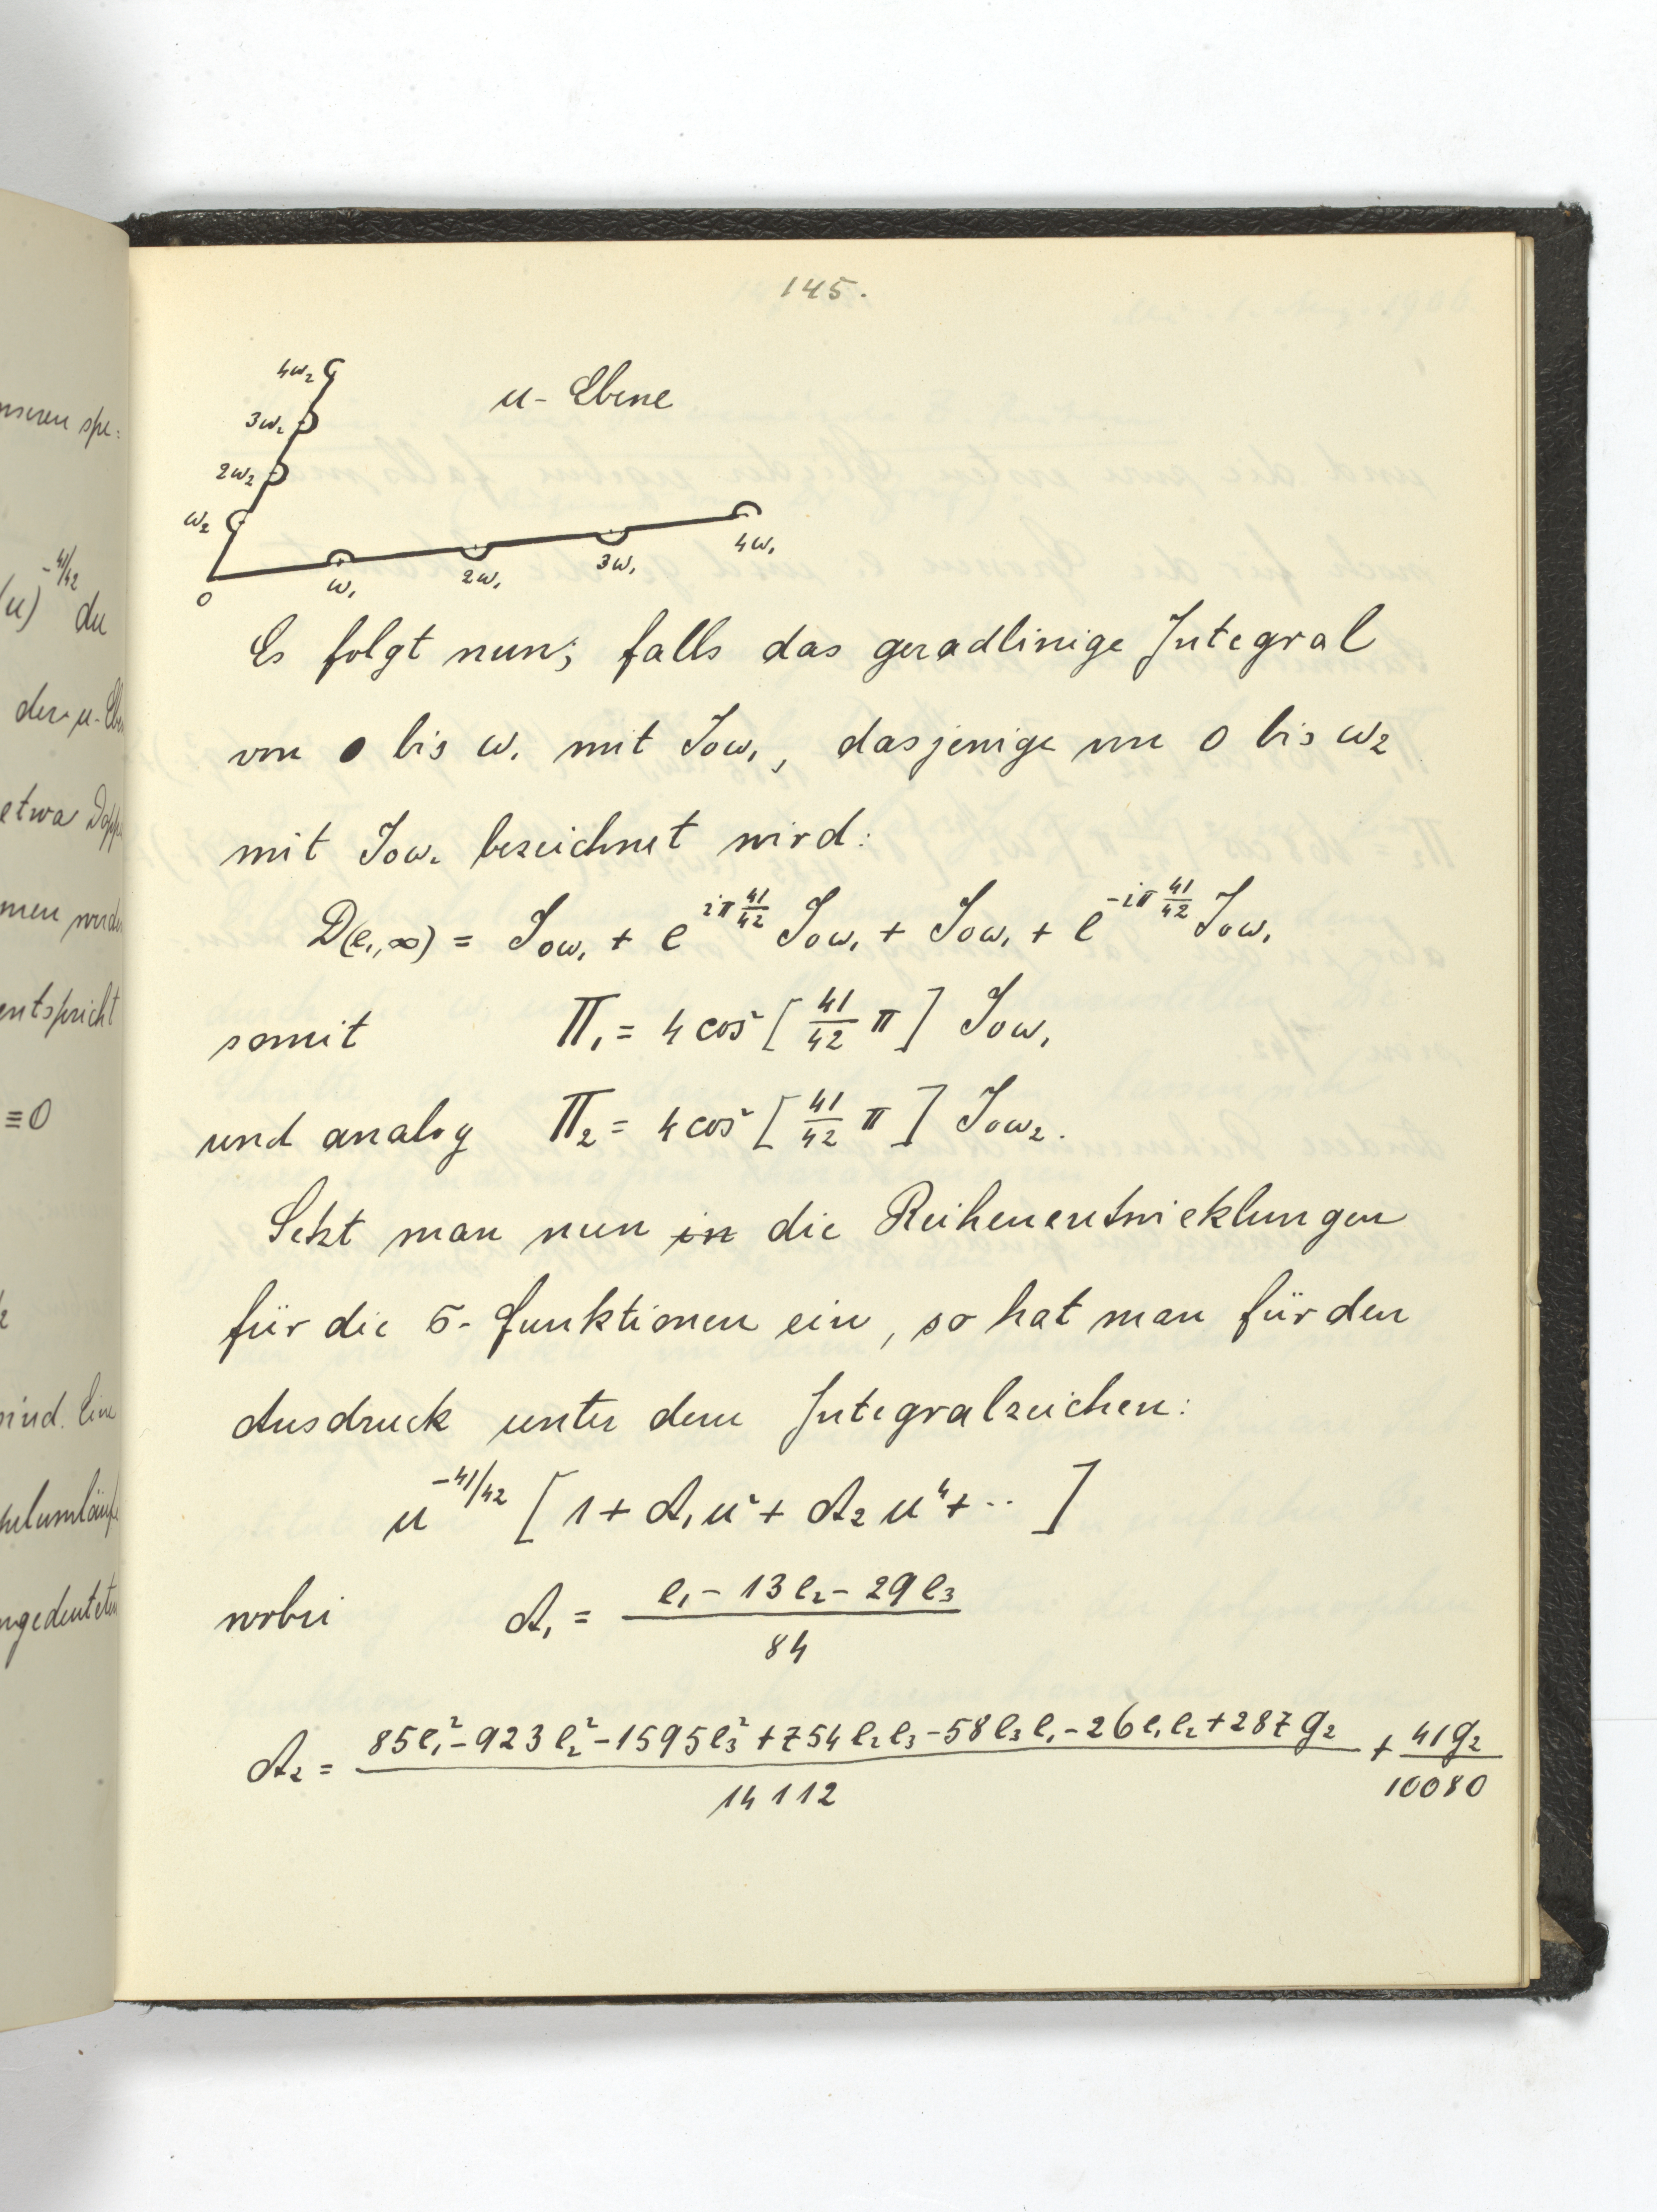 145.
4ω₂
u-Ebene
3ω₂
2ω₂
ω₂
0 ω₁ 2ω₁ 3ω₁ 4ω₁
Es folgt nun; falls das geradlinige Integral
von 0 bis ω₁ mit J₀ω₁, dasjenige von 0 bis ω₂
mit J₀ω₂ bezeichnet wird:
D(e₁,∞) = J₀ω₁ + e^{iπ 41/42} J₀ω₁ + J₀ω₁ + e^{-iπ 41/42} J₀ω₁
somit Π₁ = 4 cos² [ 41/42 π ] J₀ω₁
und analog Π₂ = 4 cos² [ 41/42 π ] J₀ω₂.
Setzt man nun in die Reihenentwicklungen
für die σ-Funktionen ein, so hat man für den
Ausdruck unter dem Integralzeichen:
u^{-41/42} [ 1 + A₁u² + A₂u⁴ + ·· ]
wobei A₁ = (e₁ - 13e₂ - 29e₃) / 84
A₂ = (85e₁² - 923e₂² - 1595e₃² + 754e₂e₃ - 58e₃e₁ - 26e₁e₂ + 287g₂) / 14112 + 41g₂ / 10080
nseren spe=
(u)^{-41/42} du
der u-Ebe
etwa Dopp
men
entspricht
≡0
sind. Eine
ngedeuteten